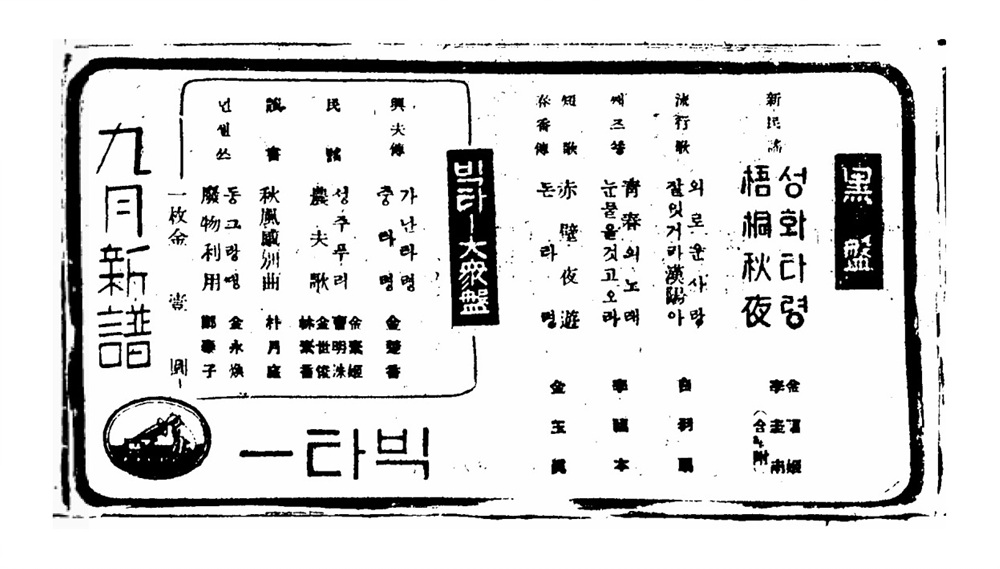 黑盤
新民謠
성화타령
梧桐秋夜
李圭南
流行歌
외로운사랑
잘잇거라漢陽아
째즈쏭
靑春의노래
눈물을것고오라
李福本
短歌
赤壁夜遊
春香傳
돈타령
金玉眞
빅타ー大衆盤
興夫傳
가난타령
중타령
金楚香
民謠
성주푸리
農夫歌
金世俊
書
秋風感別曲
朴月庭
넌센쓰
동그랑땡
廢物利用
金永煥
一枚金 壹圓
九月新譜
빅타ー